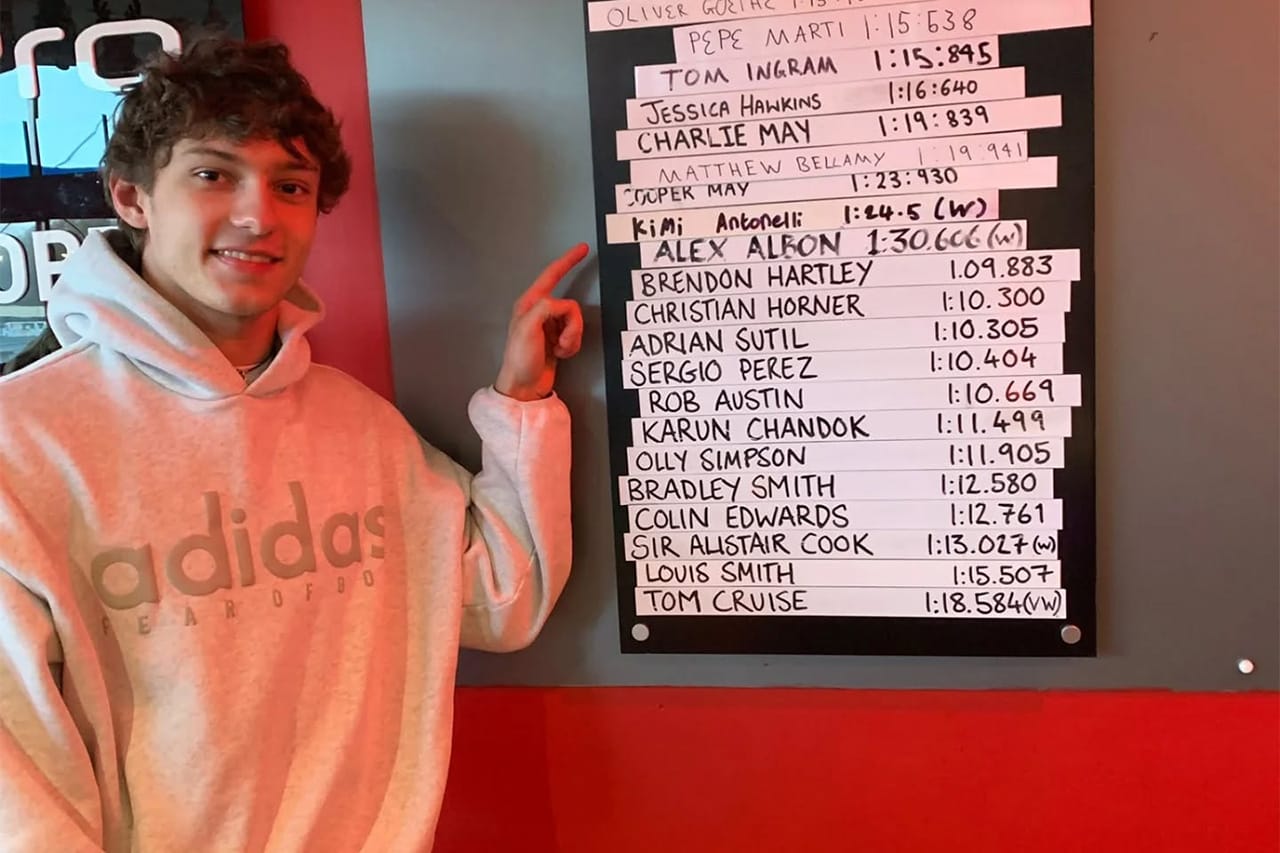 ro
OP
adidas
FEAR OF GO
OLIVER GOETHE 1:15
PEPE MARTI 1:15:638
TOM INGRAM 1:15:845
JESSICA HAWKINS 1:16:640
CHARLIE MAY 1:19:839
MATTHEW BELLAMY 1:19:941
COOPER MAY 1:23:930
KiMi Antonelli 1:24.5 (W)
ALEX ALBON 1:30.606 (W)
BRENDON HARTLEY 1.09.883
CHRISTIAN HORNER 1:10.300
ADRIAN SUTIL 1:10.305
SERGIO PEREZ 1:10.404
ROB AUSTIN 1:10.669
KARUN CHANDOK 1:11.499
OLLY SIMPSON 1:11.905
BRADLEY SMITH 1:12.580
COLIN EDWARDS 1:12.761
SIR ALISTAIR COOK 1:13.027 (W)
LOUIS SMITH 1:15.507
TOM CRUISE 1:18.584 (VW)